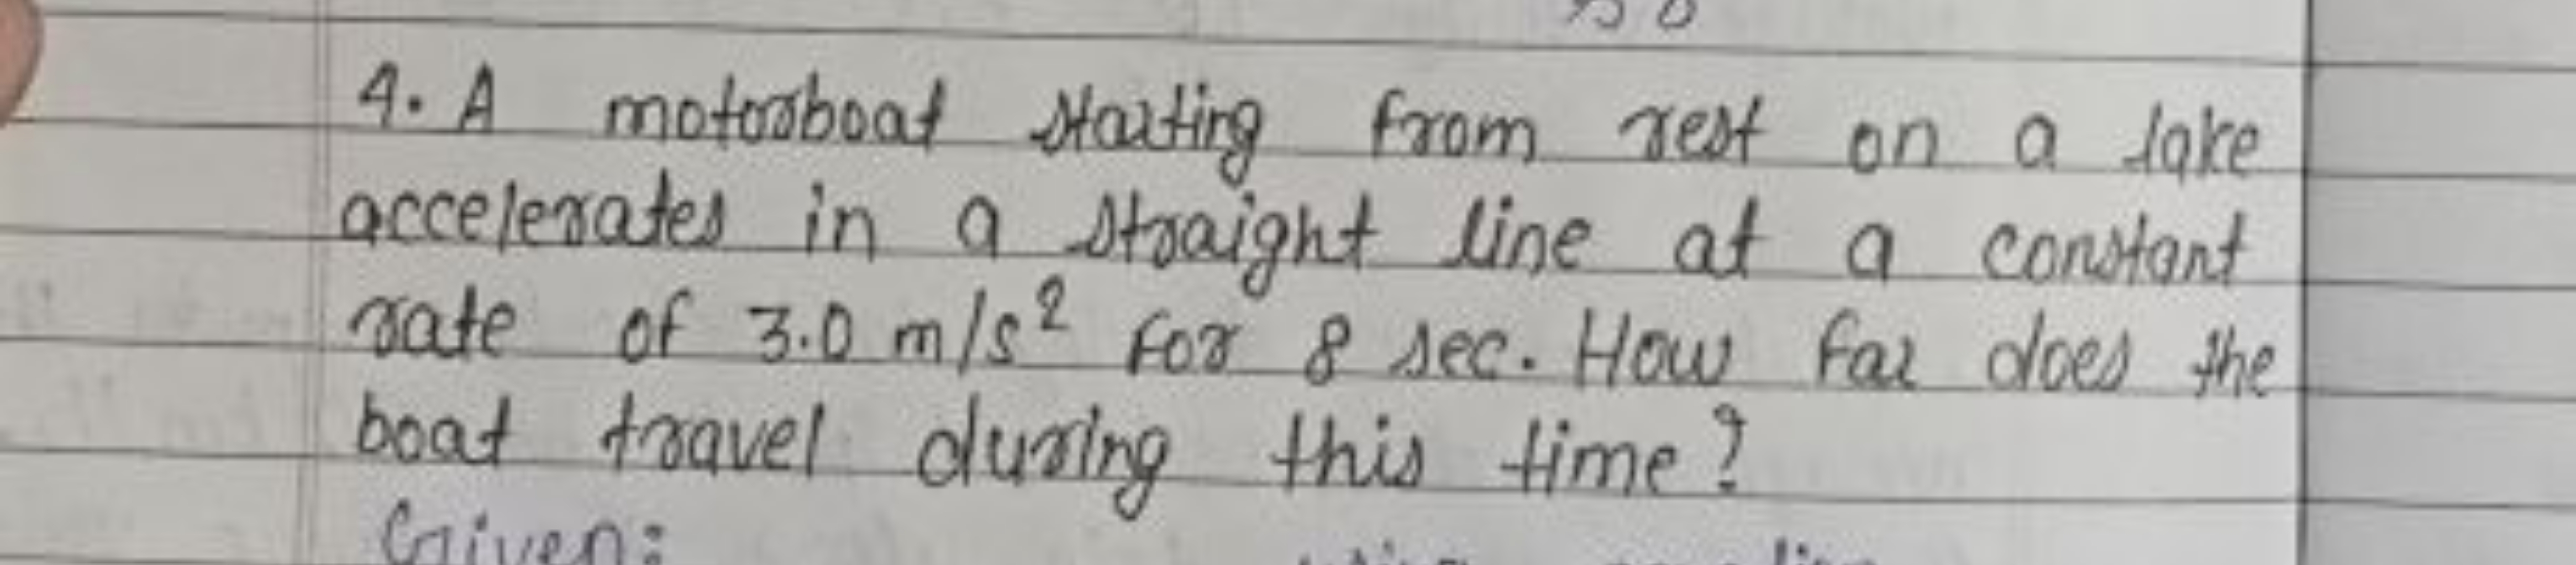 4. A motorboat starting from rest on a lake
accelerates in a straight line at a constant
rate of 3.0 m/s² for 8 sec. How far does the
boat travel during this time?
Given: